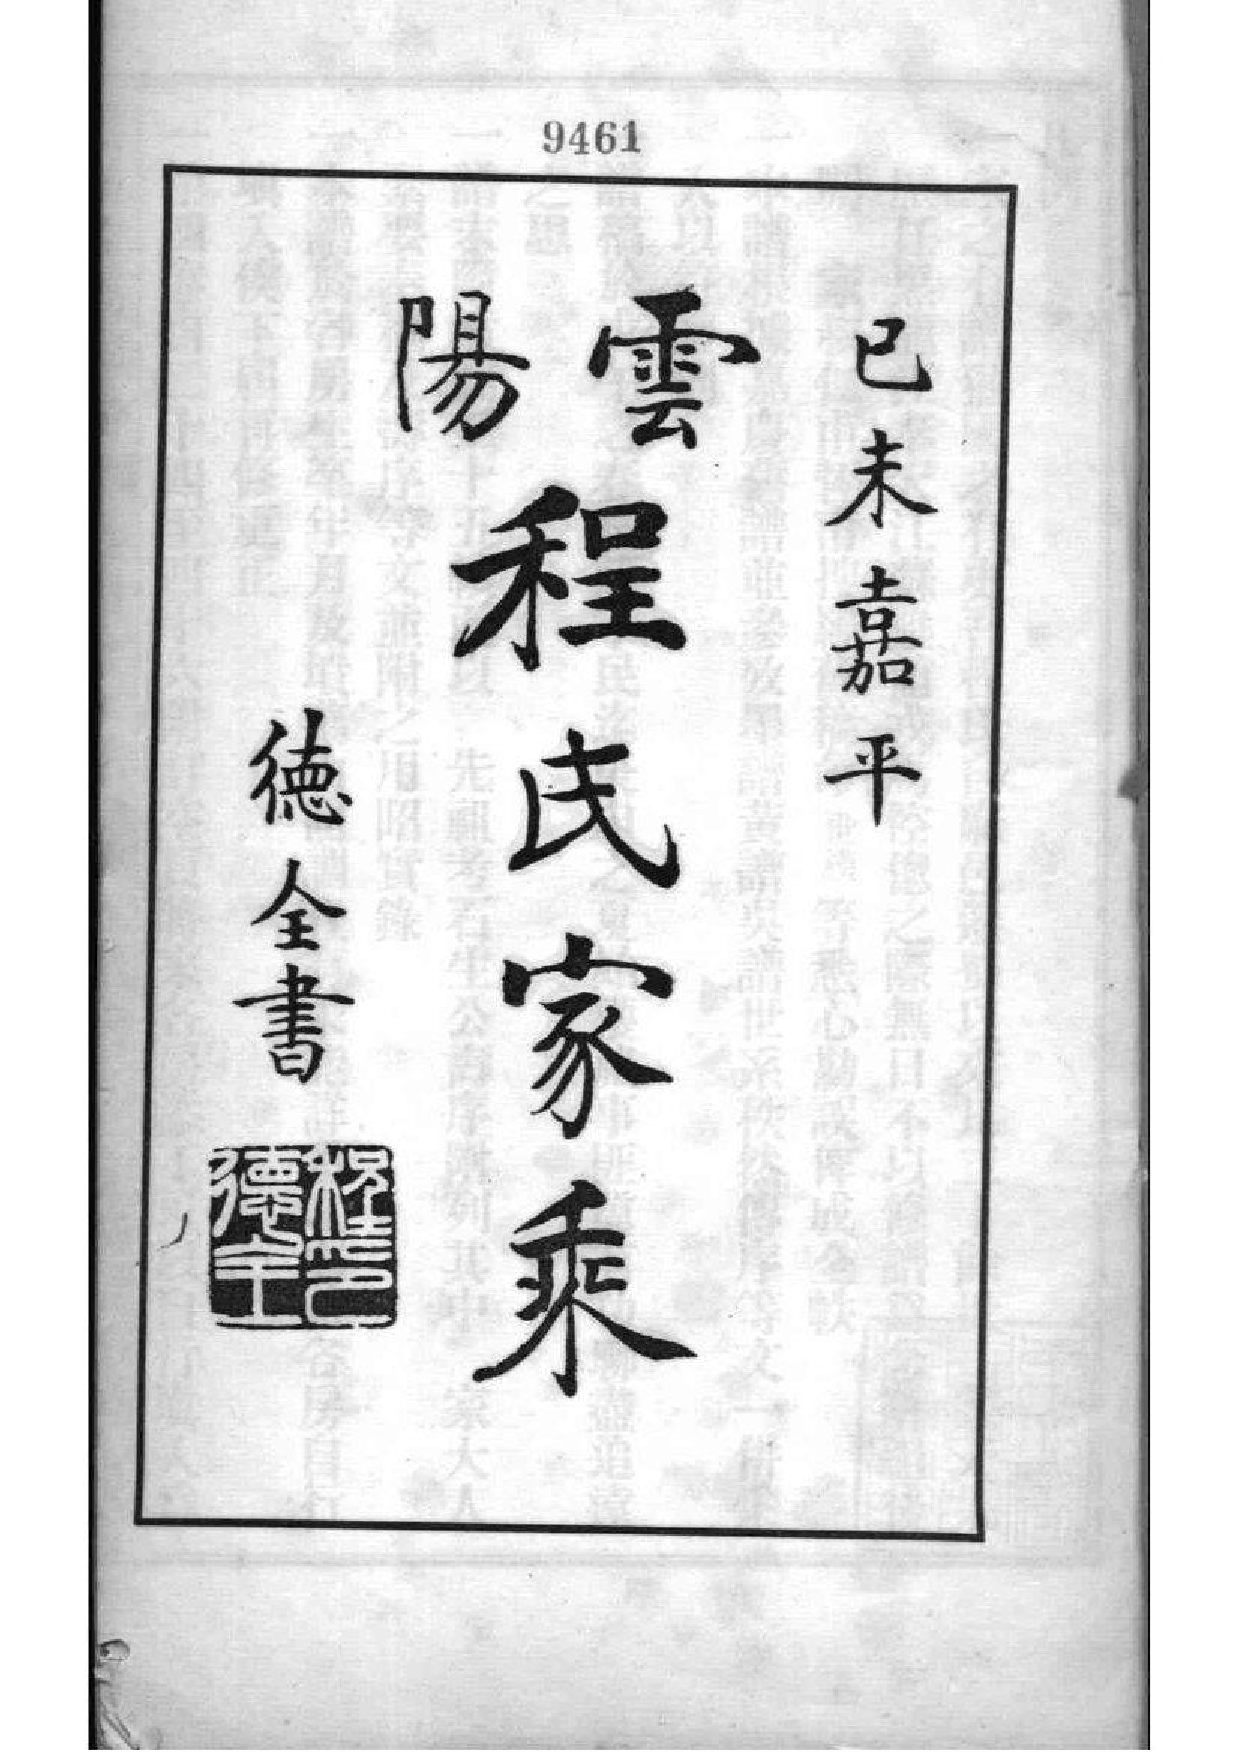 9461
己未嘉平
雲陽
程氏家乘
德全書
程德全印